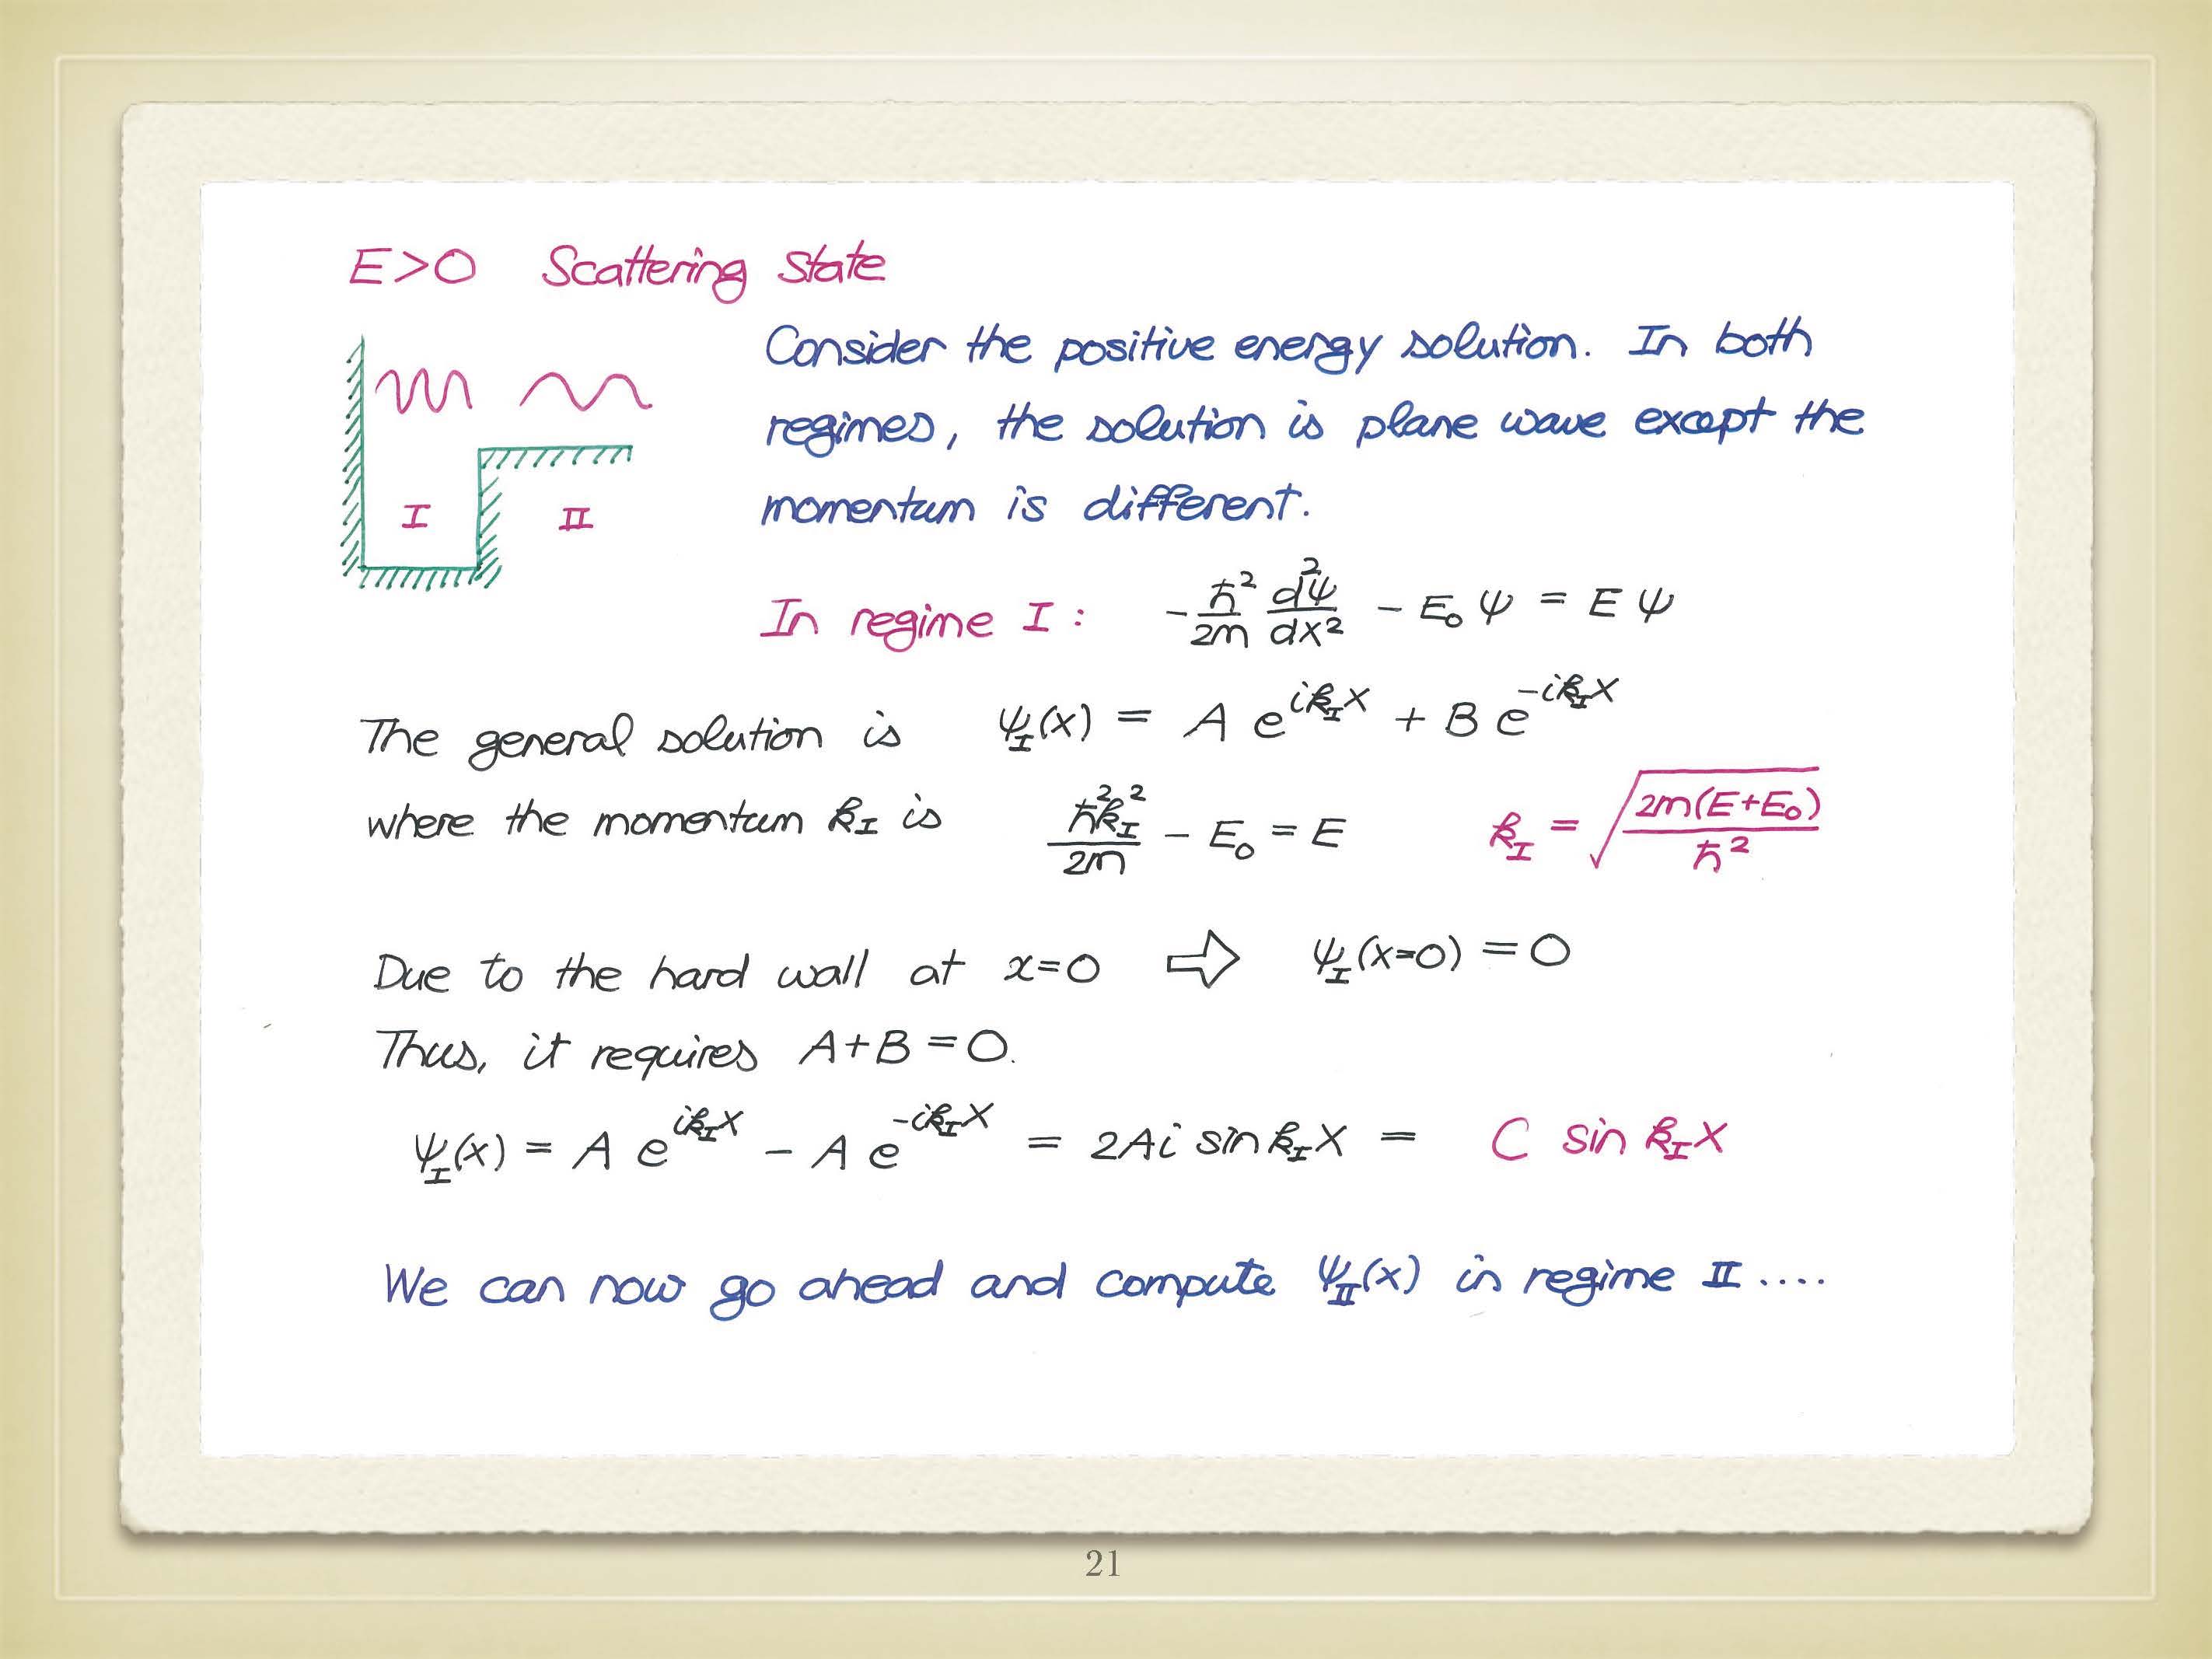 E>0 Scattering state
Consider the positive energy solution. In both
regimes, the solution is plane wave except the
momentum is different.
I II
In regime I : -ħ²/2m d²ψ/dx² - E₀ψ = Eψ
The general solution is ψ_I(x) = A e^{ik_I x} + B e^{-ik_I x}
where the momentum k_I is ħ²k_I²/2m - E₀ = E k_I = √(2m(E+E₀)/ħ²)
Due to the hard wall at x=0 ⇨ ψ_I(x=0) = 0
Thus, it requires A+B=0.
ψ_I(x) = A e^{ik_I x} - A e^{-ik_I x} = 2Ai sin k_I x = C sin k_I x
We can now go ahead and compute ψ_II(x) in regime II ....
21